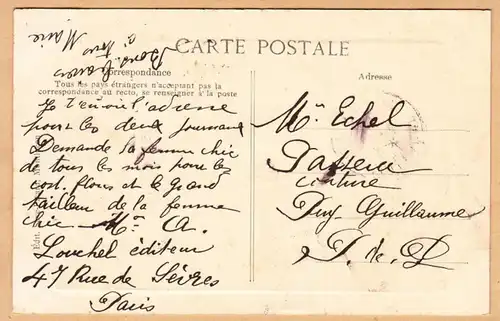 CARTE POSTALE
Correspondance
Tous les pays étrangers n'acceptant pas la
correspondance au recto, se renseigner à la poste
Je t'envoie l'adresse
pour les deux journaux
Demande la femme chic
de tous les mois pour les
cost. flous et le grand
tailleur de la femme
chic Mr A.
Louchel éditeur
47 Rue de Sèvres
Paris
Bons baisers
à tous
Marie
Adresse
Mr Echel
couture
Puy-Guillaume
P. de D
Edit.